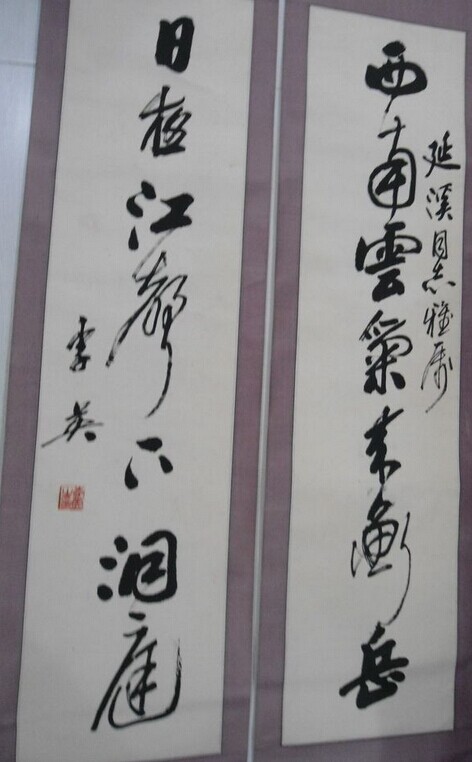 西南雲氣来衡岳
延溪同志雅属
日夜江聲下洞庭
李英